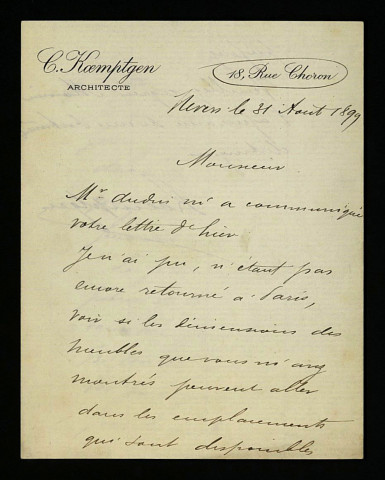 C. Kœmptgen
ARCHITECTE
18, Rue Choron
Nevers le 31 Août 1899
Monsieur
Mr m'a communiqué
votre lettre d'hier
Je n'ai pu, n'étant pas
encore retourné à Paris,
voir si les dimensions des
meubles que vous m'avez
montrés peuvent aller
dans les emplacements
qui sont disponibles